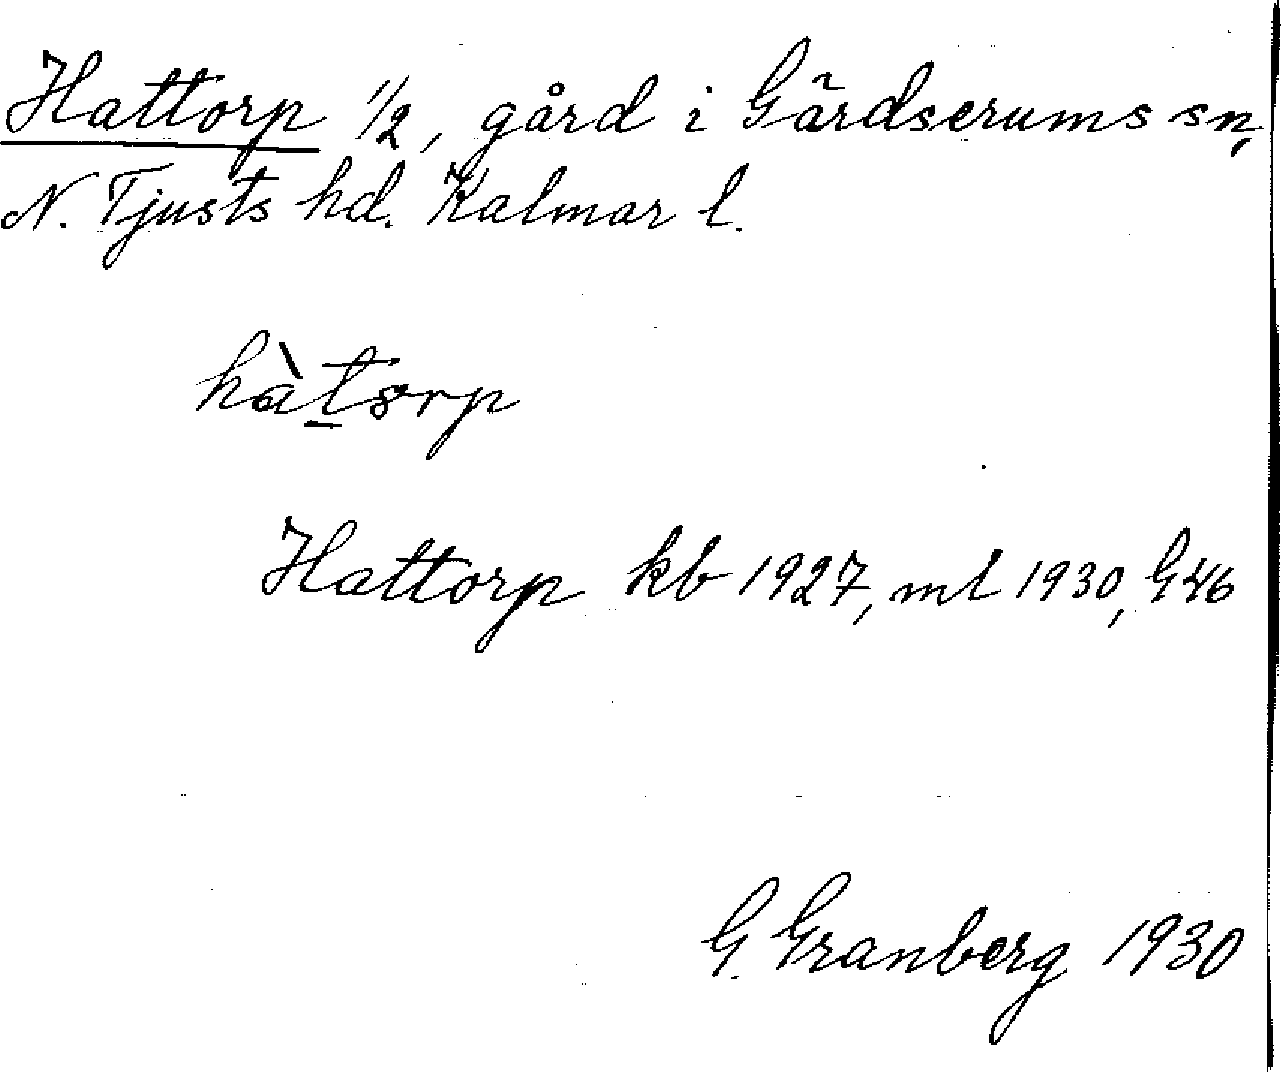 Hattorp 1/2, gård i Gärdserums sn,
N. Tjusts hd. Kalmar l.
hàt̲orp
Hattorp kb 1927, ml 1930, G46
G. Granberg 1930